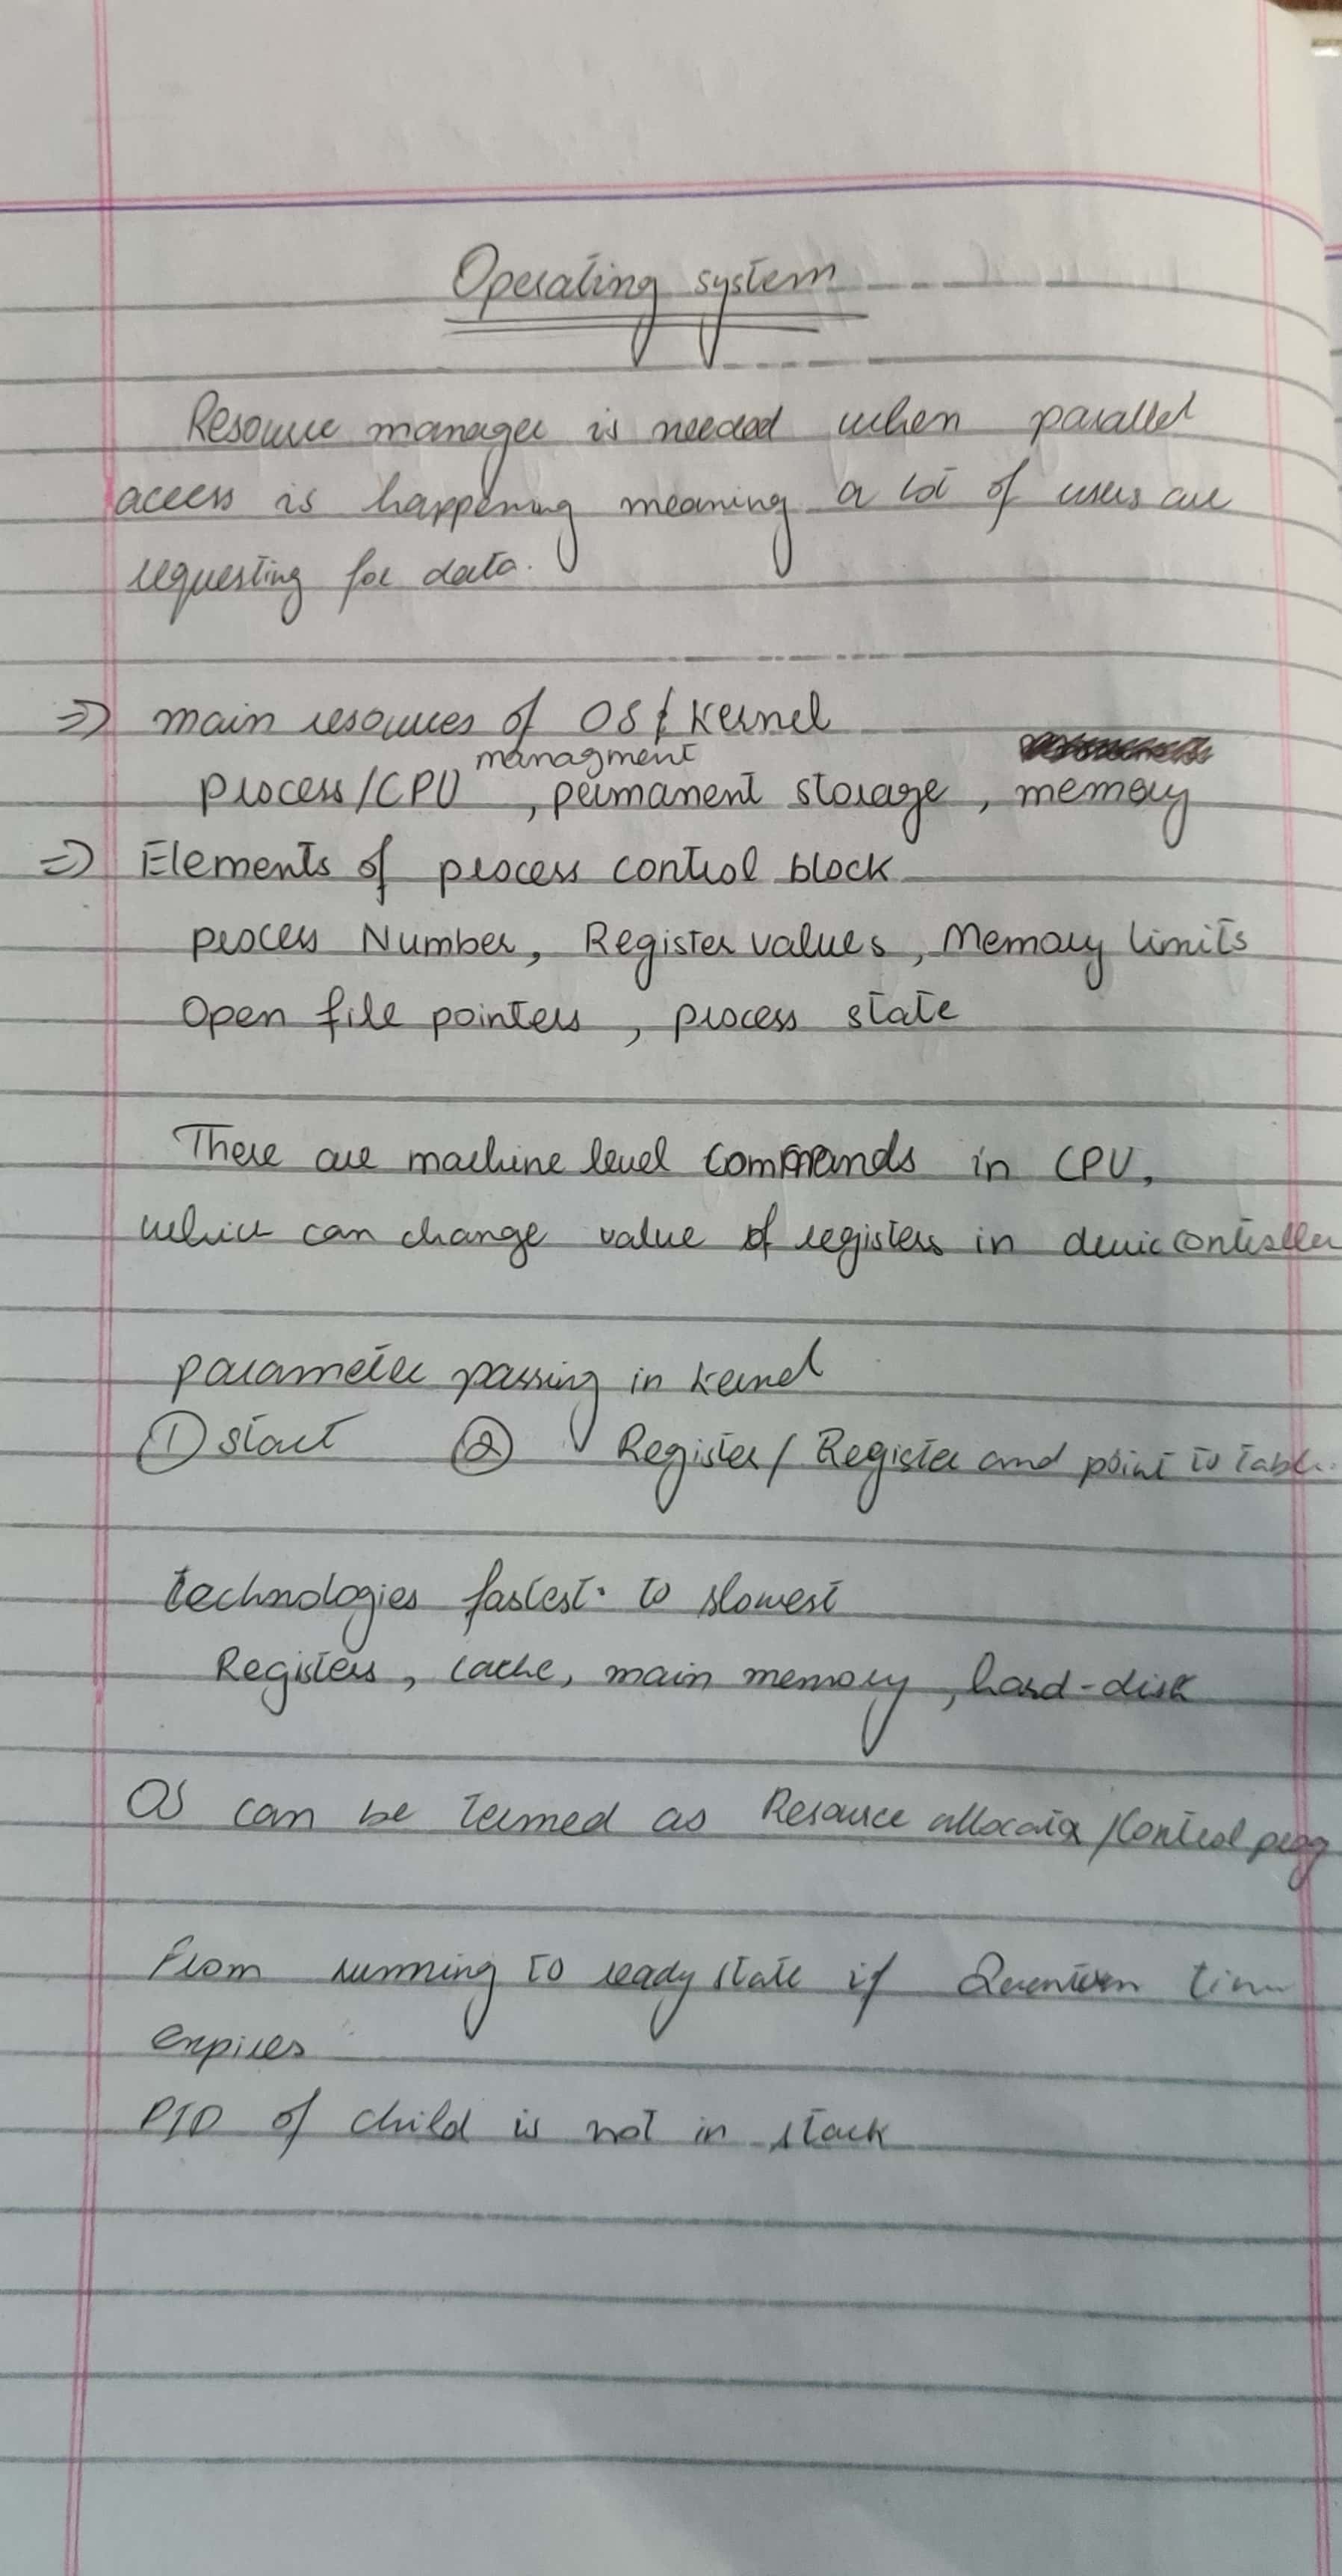 Operating system
Resource manager is needed when parallel
access is happening meaning a lot of users are
requesting for data.
⇒ main resources of OS & Kernel
managment
process/CPU , permanent storage , memory
⇒ Elements of process control block
process Number, Register values, Memory limits
Open file pointers , process state
There are machine level commands in CPU,
which can change value of registers in devic controller
parameter passing in kernel
① start ② Register / Register and point to table
technologies fastest to slowest
Registers , cache, main memory , hard-disk
OS can be termed as Resource allocator /Control prog
From running to ready state if Quantum time
expires
PID of child is not in stack